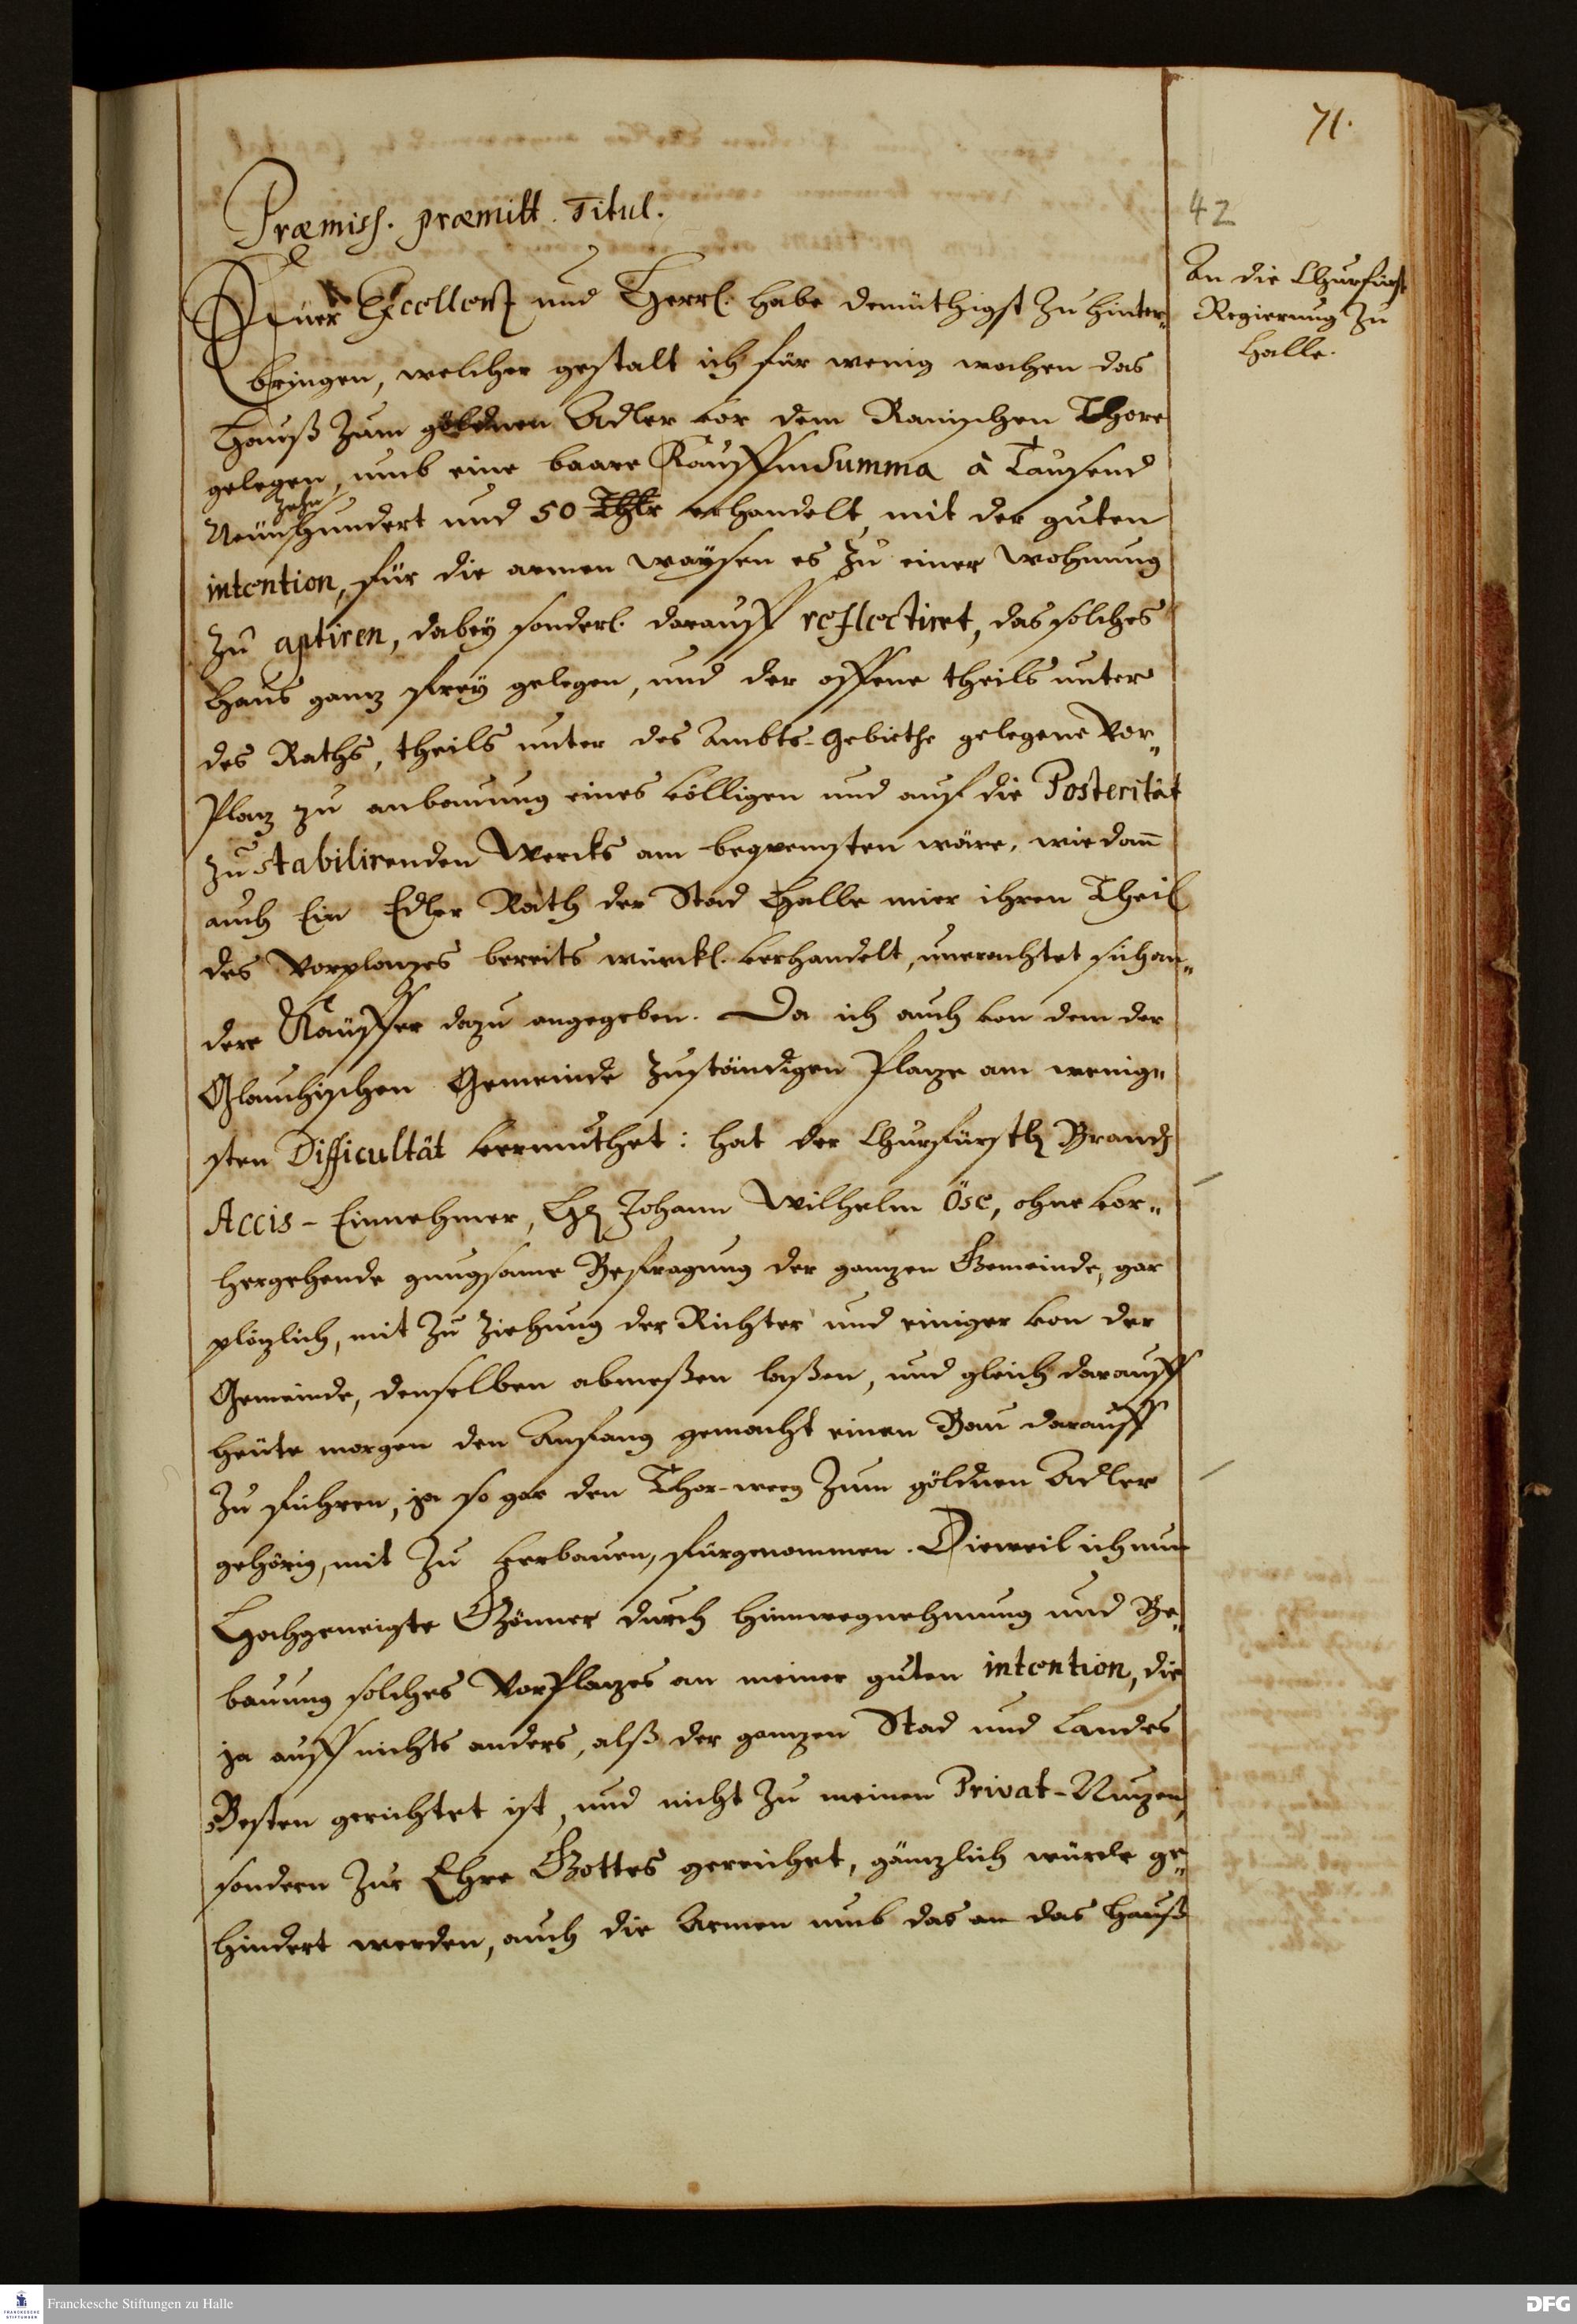 71.
42
An die Churfürstl
Regierung zu
Halle.
Præmiss. præmitt. Titul.
Eüer Excellenz und Herrl. habe demüthigst zu hinter-
bringen, welcher gestalt ich für wenig wochen das
Hauß zum göldnen Adler vor dem Ranischen Thore
gelegen, umb eine baare Kauffsumma à Tausend
Neünzehnhundert und 50 Thlr erhandelt, mit der guten
intention, für die armen waysen es zu einer wohnung
zu aptiren, dabey sonderl. darauff reflectiret, das solches
Haus ganz frey gelegen, und der offene theils unter
des Raths, theils unter des Ambts-Gebiethe gelegene Vor-
Plaz zu anbauung eines völligen und auf die Posterität
zu stabilirenden Wercks am beqvemsten wäre, wie dann
auch Ein Edler Rath der Stad Halle mir ihren Theil
des Vorplazes bereits würckl. verhandelt, unerachtet sich an-
dere Käuffer dazu angegeben. Da ich auch von dem der
Glauchischen Gemeinde zuständigen Plaze am wenig-
sten Difficultät vermuthet: hat der Churfürstl Brand
Accis-Einnehmer, H. Johann Wilhelm Öse, ohne vor-
hergehende gnugsame Befragung der ganzen Gemeinde, gar
plözlich, mit zu ziehung der Richter und einiger von der
Gemeinde, denselben abmeßen laßen, und gleich darauff
heüte morgen den Anfang gemacht einen Bau darauff
zu führen, ja so gar den Thor-weeg zum göldnen Adler
gehörig, mit zu verbauen, fürgenommen. Dieweil ich nun
Hochgeneigte Gönner durch hinwegnehmung und Be-
bauung solches Vorplazes an meiner guten intention, die
ja auff nichts anders, alß der ganzen Stad und Landes
Besten gerichtet ist, und nicht zu meinen Privat-Nuzen,
sondern zur Ehre Gottes gereichet, gänzlich würde ge-
hindert werden, auch die Armen umb das an das Hauß
Franckesche Stiftungen zu Halle
DFG